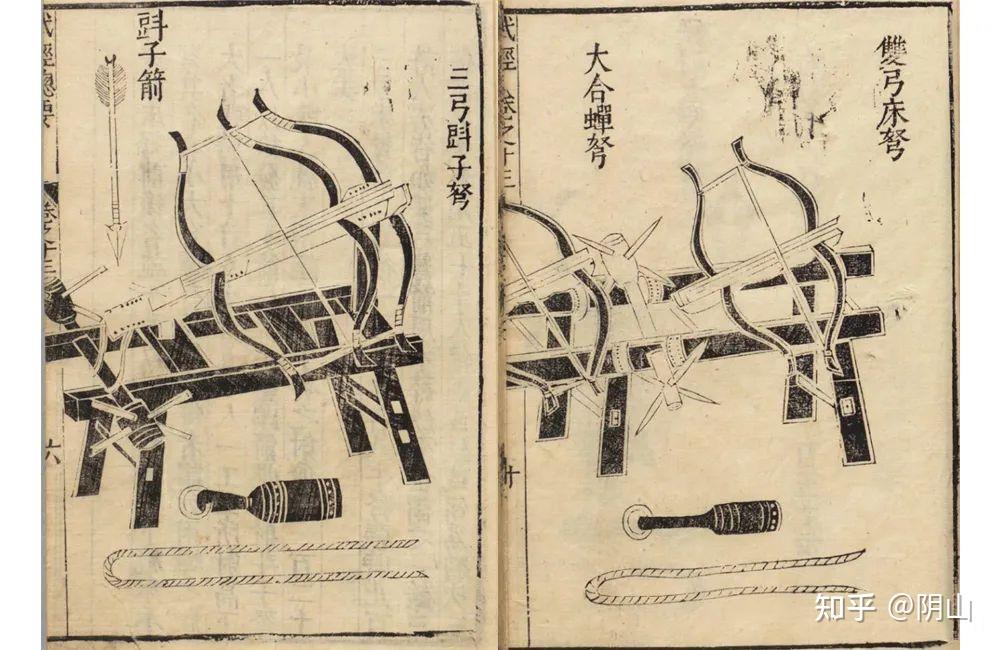 雙弓床弩
大合蟬弩
武經 卷之十三
三弓㪷子弩
㪷子箭
武經總要 卷之十三
六
知乎 @阴山